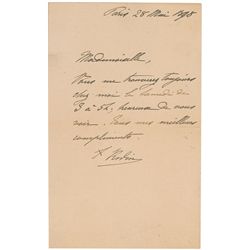 Paris 28 Mai 1898
Mademoiselle,
Vous me trouverez toujours
chez moi le Samedi de
3 à 5h; heureux de vous
voir. Tous mes meilleurs
compliments.
A Rodin